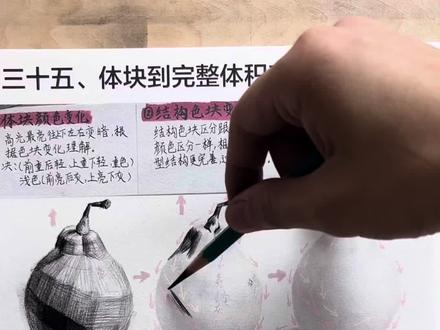 三十五、体块到完整体积
体块颜色变化
高光最亮往下左右变暗,根
据色块变化理解。
决:(前重后轻,上重下轻,重色)
浅色(前亮后灰,上亮下灰)
自结构色块变
结构色块区分跟
颜色区分一样,相
型结构更完善,